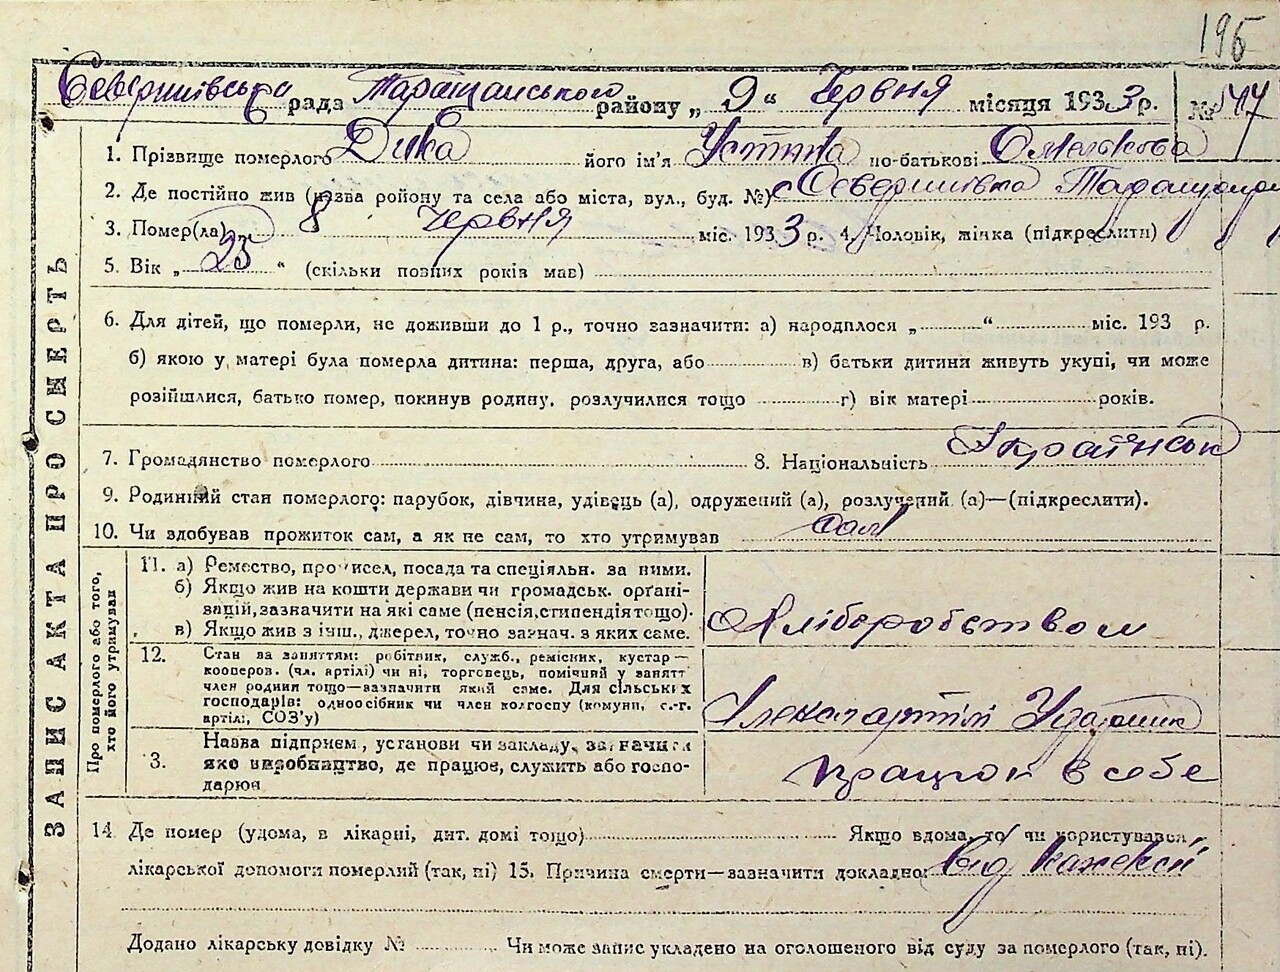 195
Северинівська рада Таращанського району „ 9 “ Червня місяця 1933 р. №
1. Прізвище померлого Дика його ім'я Устина по-батькові Омелькова
2. Де постійно жив (назва ройону та села або міста, вул., буд. №) с Северинівка
3. Помер(ла) 8 червня міс. 1933 р. 4. Чоловік, жінка (підкреслити)
5. Вік „ 23 “ (скільки повних років мав)
6. Для дітей, що померли, не доживши до 1 р., точно зазначити: а) народилося „ “ міс. 193 р.
б) якою у матері була померла дитина: перша, друга, або в) батьки дитини живуть укупі, чи може
розійшлися, батько помер, покинув родину, розлучилися тощо г) вік матері років.
7. Громадянство померлого 8. Національність Українськ
9. Родинний стан померлого: парубок, дівчина, удівець (а), одружений (а), розлучений (а)—(підкреслити).
10. Чи здобував прожиток сам, а як не сам, то хто утримував сам
ЗАПИС АКТА ПРО СМЕРТЬ
Про померлого або того, хто його утримував
11. а) Ремество, промисел, посада та спеціяльн. за ними.
б) Якщо жив на кошти держави чи громадськ. орґані-
зацій, зазначити на які саме (пенсія, стипендія тощо).
в) Якщо жив з інш., джерел, точно зазнач. з яких саме.
Хліборобством
12. Стан за заняттям: робітник, служб., ремісник, кустар—
кооперов. (чл. артілі) чи ні, торговець, помічний у занятт
член родини тощо—зазначити який саме. Для сільських
господарів: одноосібник чи член колгоспу (комуни, с.-г.
артілі, СОЗ'у)
3. Назва підприєм, установи чи закладу, зазначити
яке виробництво, де працює, служить або госпо-
дарює
працюй в себе
14. Де помер (удома, в лікарні, дит. домі тощо) Якщо вдома, то чи користувався
лікарської допомоги померлий (так, ні) 15. Причина смерти—зазначити докладно: Від кахексії
Додано лікарську довідку № Чи може запис укладено на оголошеного від суду за померлого (так, ні).